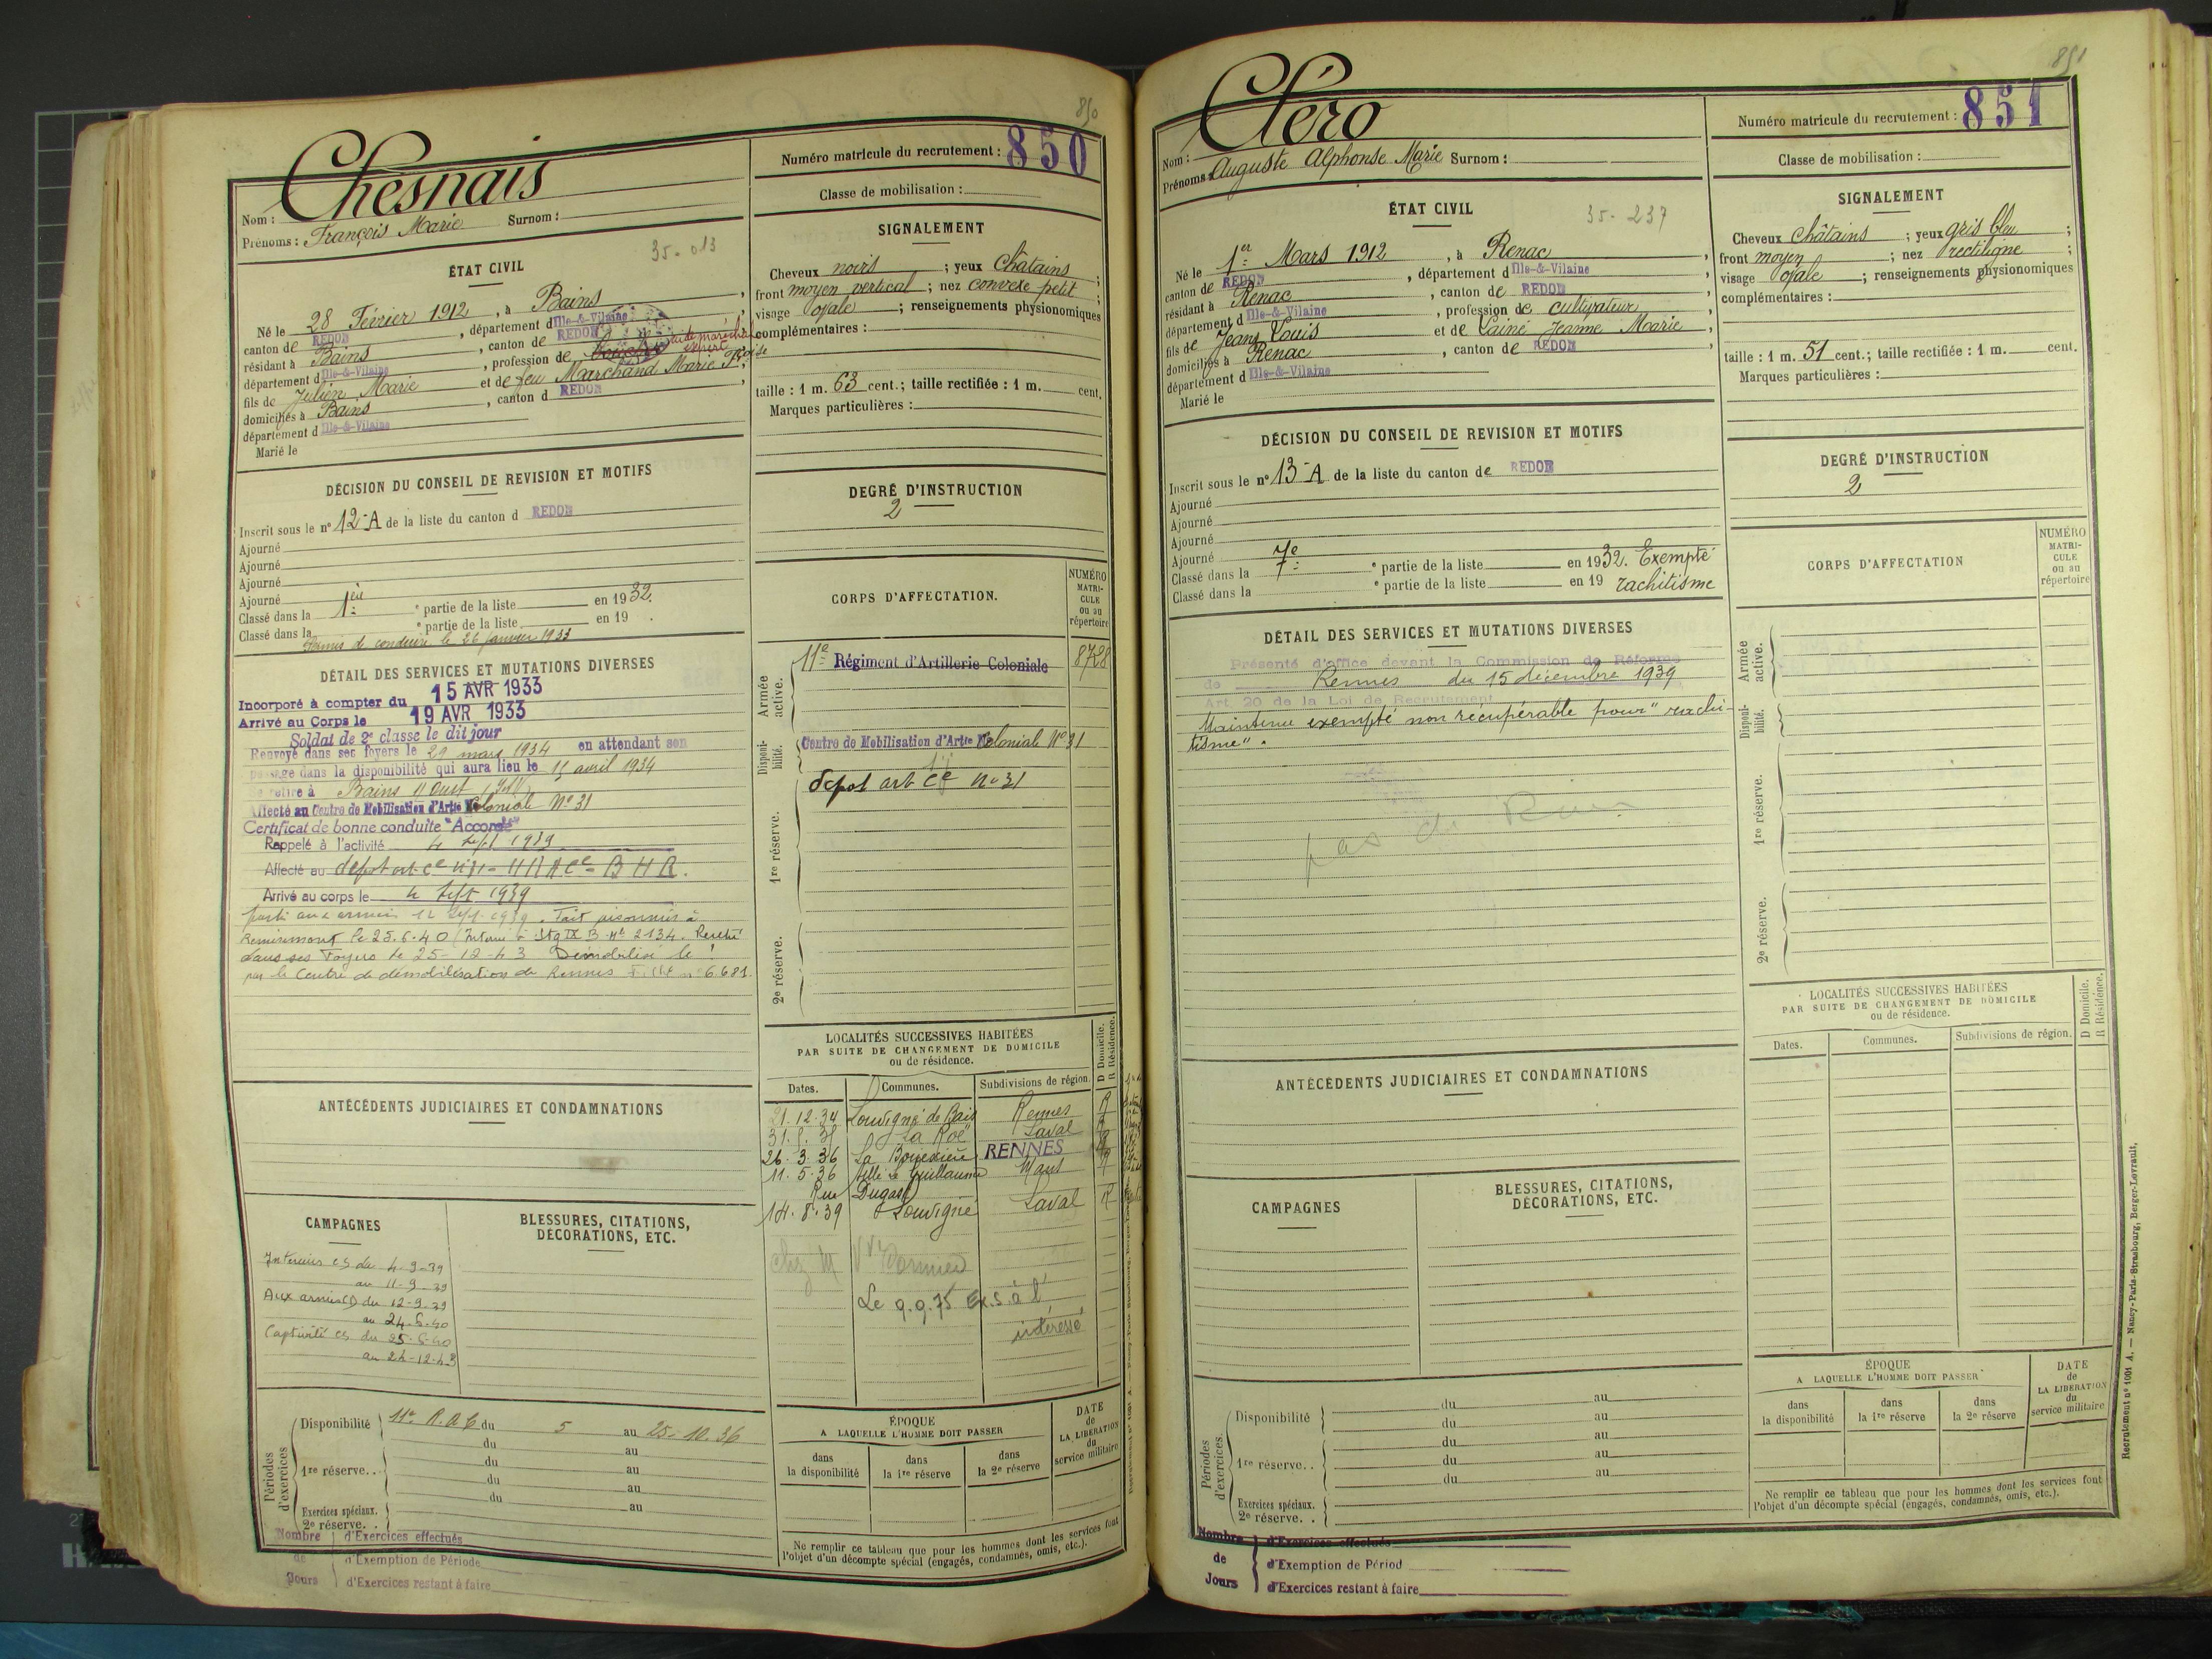 850
Chesnais
Nom :
Prénoms : François Marie Surnom :
Numéro matricule du recrutement : 850
Classe de mobilisation :
ÉTAT CIVIL
35-013
Né le 28 Février 1912, à Bains,
canton de REDON, département d Ille-&-Vilaine,
résidant à Bains, canton de REDON
département d Ille-&-Vilaine, profession de
fils de Julien Marie et de feu Marchand Marie
domiciliés à Bains, canton d REDON,
département d Ille-&-Vilaine
Marié le
SIGNALEMENT
Cheveux noirs ; yeux châtains ;
front moyen vertical ; nez convexe petit ;
visage ovale ; renseignements physionomiques
complémentaires :
taille : 1 m. 63 cent.; taille rectifiée : 1 m. cent.
Marques particulières :
DÉCISION DU CONSEIL DE REVISION ET MOTIFS
Inscrit sous le n° 12-A de la liste du canton d REDON
Ajourné
Ajourné
Ajourné
Ajourné
Classé dans la 1ère e partie de la liste en 1932.
Classé dans la e partie de la liste en 19 .
Permis de conduire le 26 janvier 1933
DEGRÉ D'INSTRUCTION
2
DÉTAIL DES SERVICES ET MUTATIONS DIVERSES
Incorporé à compter du 15 AVR 1933
Arrivé au Corps le 19 AVR 1933
Soldat de 2e classe le dit jour
Renvoyé dans ses foyers le 29 mars 1934 en attendant son
passage dans la disponibilité qui aura lieu le 15 avril 1934
Se retire à Bains
Affecté au Centre de Mobilisation d'Artie Coloniale N° 31
Certificat de bonne conduite "Accordé"
Rappelé à l'activité 4 sept 1939
Affecté au depot art ce
Arrivé au corps le 4 sept. 1939
parti aux armées 12 sept. 1939. Fait prisonnier à
Remiremont le 25.6.40 Interné à Stg IX B N° 2134. Rentré
dans ses Foyers le 25-12-43 Démobilisé le
par le Centre de démobilisation de Rennes 6.681.
CORPS D'AFFECTATION.
NUMÉRO MATRICULE ou au répertoire
Armée active.
11e Régiment d'Artillerie Coloniale 8728
Disponibilité.
Centre de Mobilisation d'Artie Coloniale N° 31
depot art ce n° 31
1re réserve.
2e réserve.
ANTÉCÉDENTS JUDICIAIRES ET CONDAMNATIONS
LOCALITÉS SUCCESSIVES HABITÉES
PAR SUITE DE CHANGEMENT DE DOMICILE
ou de résidence.
D Domicile.
R Résidence.
Dates. Communes. Subdivisions de région.
21.12.34 Louvigné de Bais Rennes R
La Roë Laval R
26.3.36 La Bouëxière RENNES R
11.5.36 Ville le Guillaume R
Rue Dugast
14.8.39 Louvigné Laval R
chez M
Le 9.9.75 Ex.S. à l'
intéressé
CAMPAGNES
Intérieur CS du 4-9-39
au 11-9-39
Aux armées du 12-9-39
au 24.6.40
Captivité CS du 25-6-40
au 24-12-43
BLESSURES, CITATIONS,
DÉCORATIONS, ETC.
Périodes d'exercices.
Disponibilité 11e R.A.C du 5 au 25-10.36
du au
1re réserve. . du au
du au
du au
Exercices spéciaux.
2e réserve. .
Nombre de Jours
d'Exercices effectués
d'Exemption de Période
d'Exercices restant à faire
ÉPOQUE
A LAQUELLE L'HOMME DOIT PASSER
dans la disponibilité
dans la 1re réserve
dans la 2e réserve
DATE de LA LIBÉRATION du service militaire
Ne remplir ce tableau que pour les hommes dont les services font
l'objet d'un décompte spécial (engagés, condamnés, omis, etc.).
851
Cléro
Nom :
Prénoms : Auguste Alphonse Marie Surnom :
Numéro matricule du recrutement : 851
Classe de mobilisation :
ÉTAT CIVIL
35-237
Né le 1er Mars 1912, à Renac,
canton de REDON, département d Ille-&-Vilaine
résidant à Renac, canton de REDON
département d Ille-&-Vilaine, profession de cultivateur,
fils de Jean Louis et de Lainé Jeanne Marie,
domiciliés à Renac, canton de REDON
département d Ille-&-Vilaine
Marié le
SIGNALEMENT
Cheveux châtains ; yeux gris bleu ;
front moyen ; nez rectiligne ;
visage ovale ; renseignements physionomiques
complémentaires :
taille : 1 m. 51 cent.; taille rectifiée : 1 m. cent.
Marques particulières :
DÉCISION DU CONSEIL DE REVISION ET MOTIFS
Inscrit sous le n° 13-A de la liste du canton de REDON
Ajourné
Ajourné
Ajourné
Ajourné
Classé dans la 7e e partie de la liste en 1932. Exempté
Classé dans la e partie de la liste en 19 rachitisme
DEGRÉ D'INSTRUCTION
2
DÉTAIL DES SERVICES ET MUTATIONS DIVERSES
Présenté d'office devant la Commission de Réforme
de Rennes du 15 décembre 1939
Art. 20 de la Loi de Recrutement
Maintenu exempté non récupérable pour "rachi-
tisme".
pas de
CORPS D'AFFECTATION
NUMÉRO MATRICULE ou au répertoire
Armée active.
Disponibilité.
1re réserve.
2e réserve.
ANTÉCÉDENTS JUDICIAIRES ET CONDAMNATIONS
LOCALITÉS SUCCESSIVES HABITÉES
PAR SUITE DE CHANGEMENT DE DOMICILE
ou de résidence.
D Domicile.
R Résidence.
Dates. Communes. Subdivisions de région.
CAMPAGNES
BLESSURES, CITATIONS,
DÉCORATIONS, ETC.
Périodes d'exercices.
Disponibilité du au
du au
1re réserve. . du au
du au
du au
Exercices spéciaux.
2e réserve. .
Nombre de Jours
d'Exercices effectués
d'Exemption de Périod
d'Exercices restant à faire
ÉPOQUE
A LAQUELLE L'HOMME DOIT PASSER
dans la disponibilité
dans la 1re réserve
dans la 2e réserve
DATE de LA LIBÉRATION du service militaire
Ne remplir ce tableau que pour les hommes dont les services font
l'objet d'un décompte spécial (engagés, condamnés, omis, etc.).
Recrutement n° 1091 A. — Nancy-Paris-Strasbourg, Berger-Levrault.